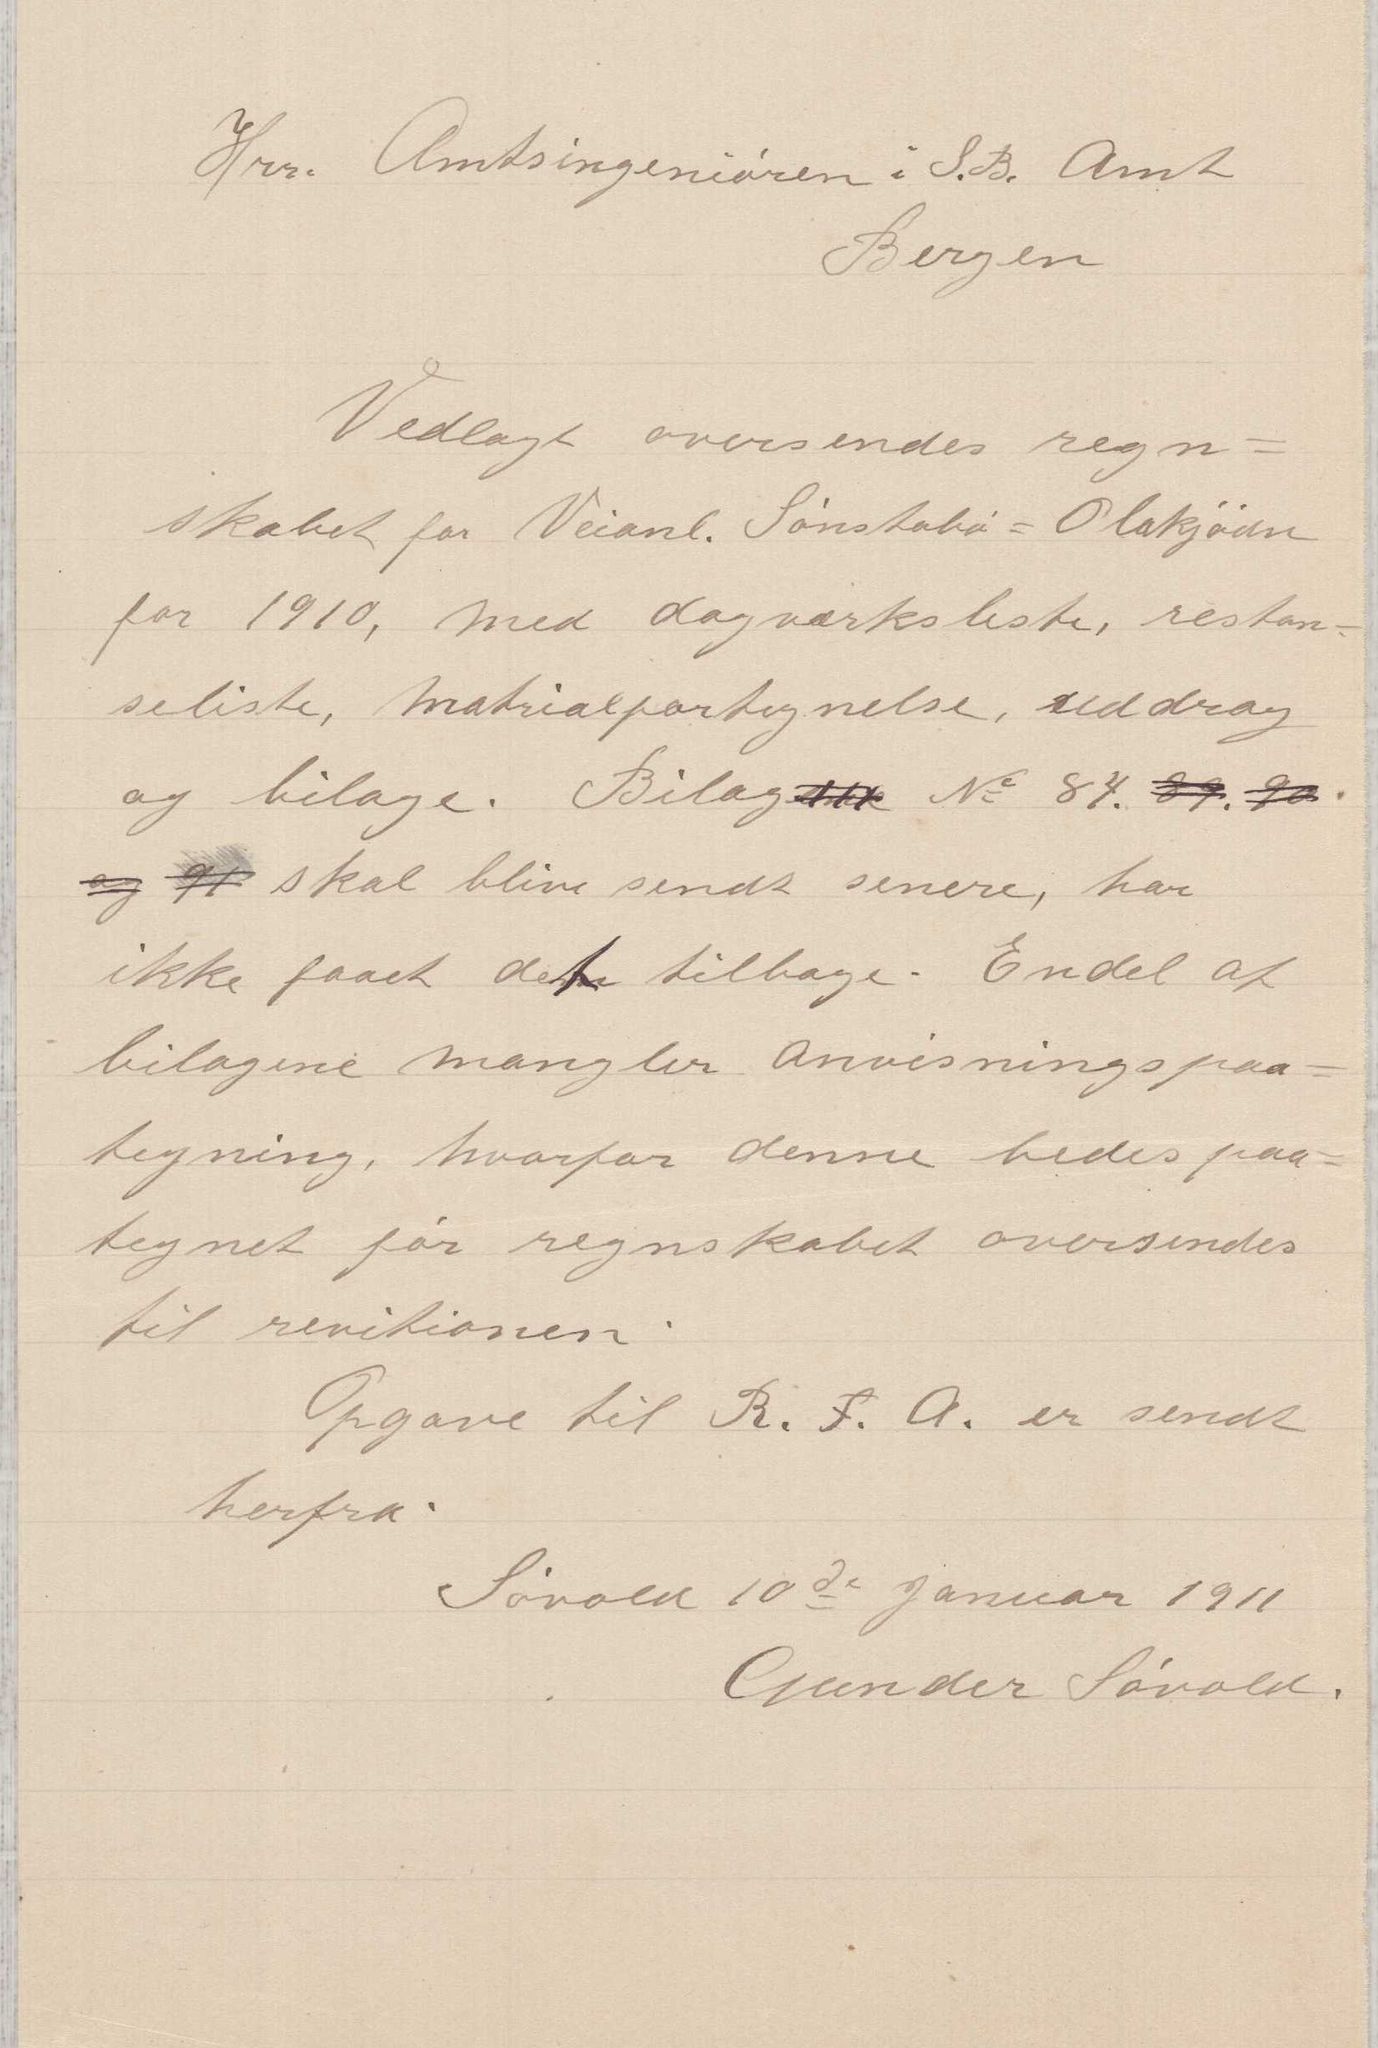 Hrr. Amtsingeniören i S.B. Amt
Bergen
Vedlagt oversendes regn=
skabet for Veianl. Sönstabö = Olakjödn
for 1910, med dagværksliste, restan=
seliste, Matrialfortegnelse, uddrag
og bilage. Bilag No 87. 89. 90.
og 91 skal blive sendt senere, har
ikke faaet det tilbage. Endel af
bilagene mangler anvisningspaa=
tegning, hvorfor denne bedes paa=
tegnet för regnskabet oversendes
til revitionen.
Opgave til R. F. A. er sendt
herfra.
Sövold 10de Januar 1911
Gunder Sövold.